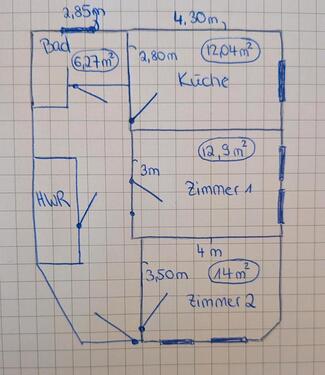 2,85m
4,30m
Bad
6,27m²
2,80m
12,04m²
Küche
3m
12,9m²
Zimmer 1
HWR
4m
3,50m
14m²
Zimmer 2